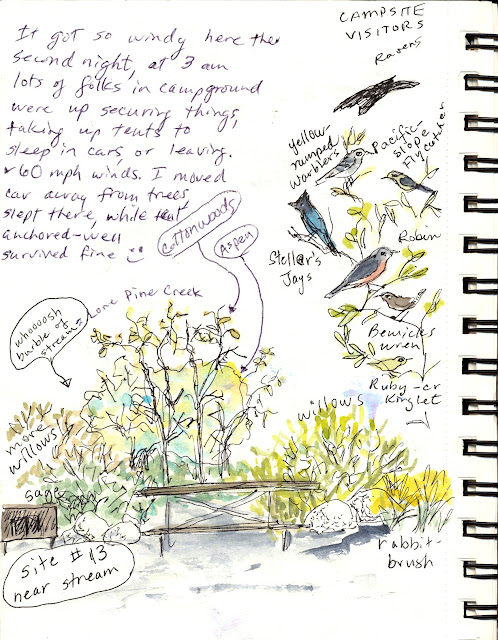 It got so windy here the
second night, at 3 am
lots of folks in campground
were up securing things,
taking up tents to
sleep in cars, or leaving.
60 mph winds. I moved
car away from trees,
slept there, while tent
anchored-well
survived fine
CAMPSITE
VISITORS
Ravens
Yellow-
rumped
Warblers
Pacific-
slope
Flycatcher
Steller's
Jays
Robin
Bewick's
wren
Ruby-cr
Kinglet
Cottonwoods
Aspen
Lone Pine Creek
whoooosh
burble
of
stream
more
willows
sage
willows
site #43
near stream
rabbit-
brush